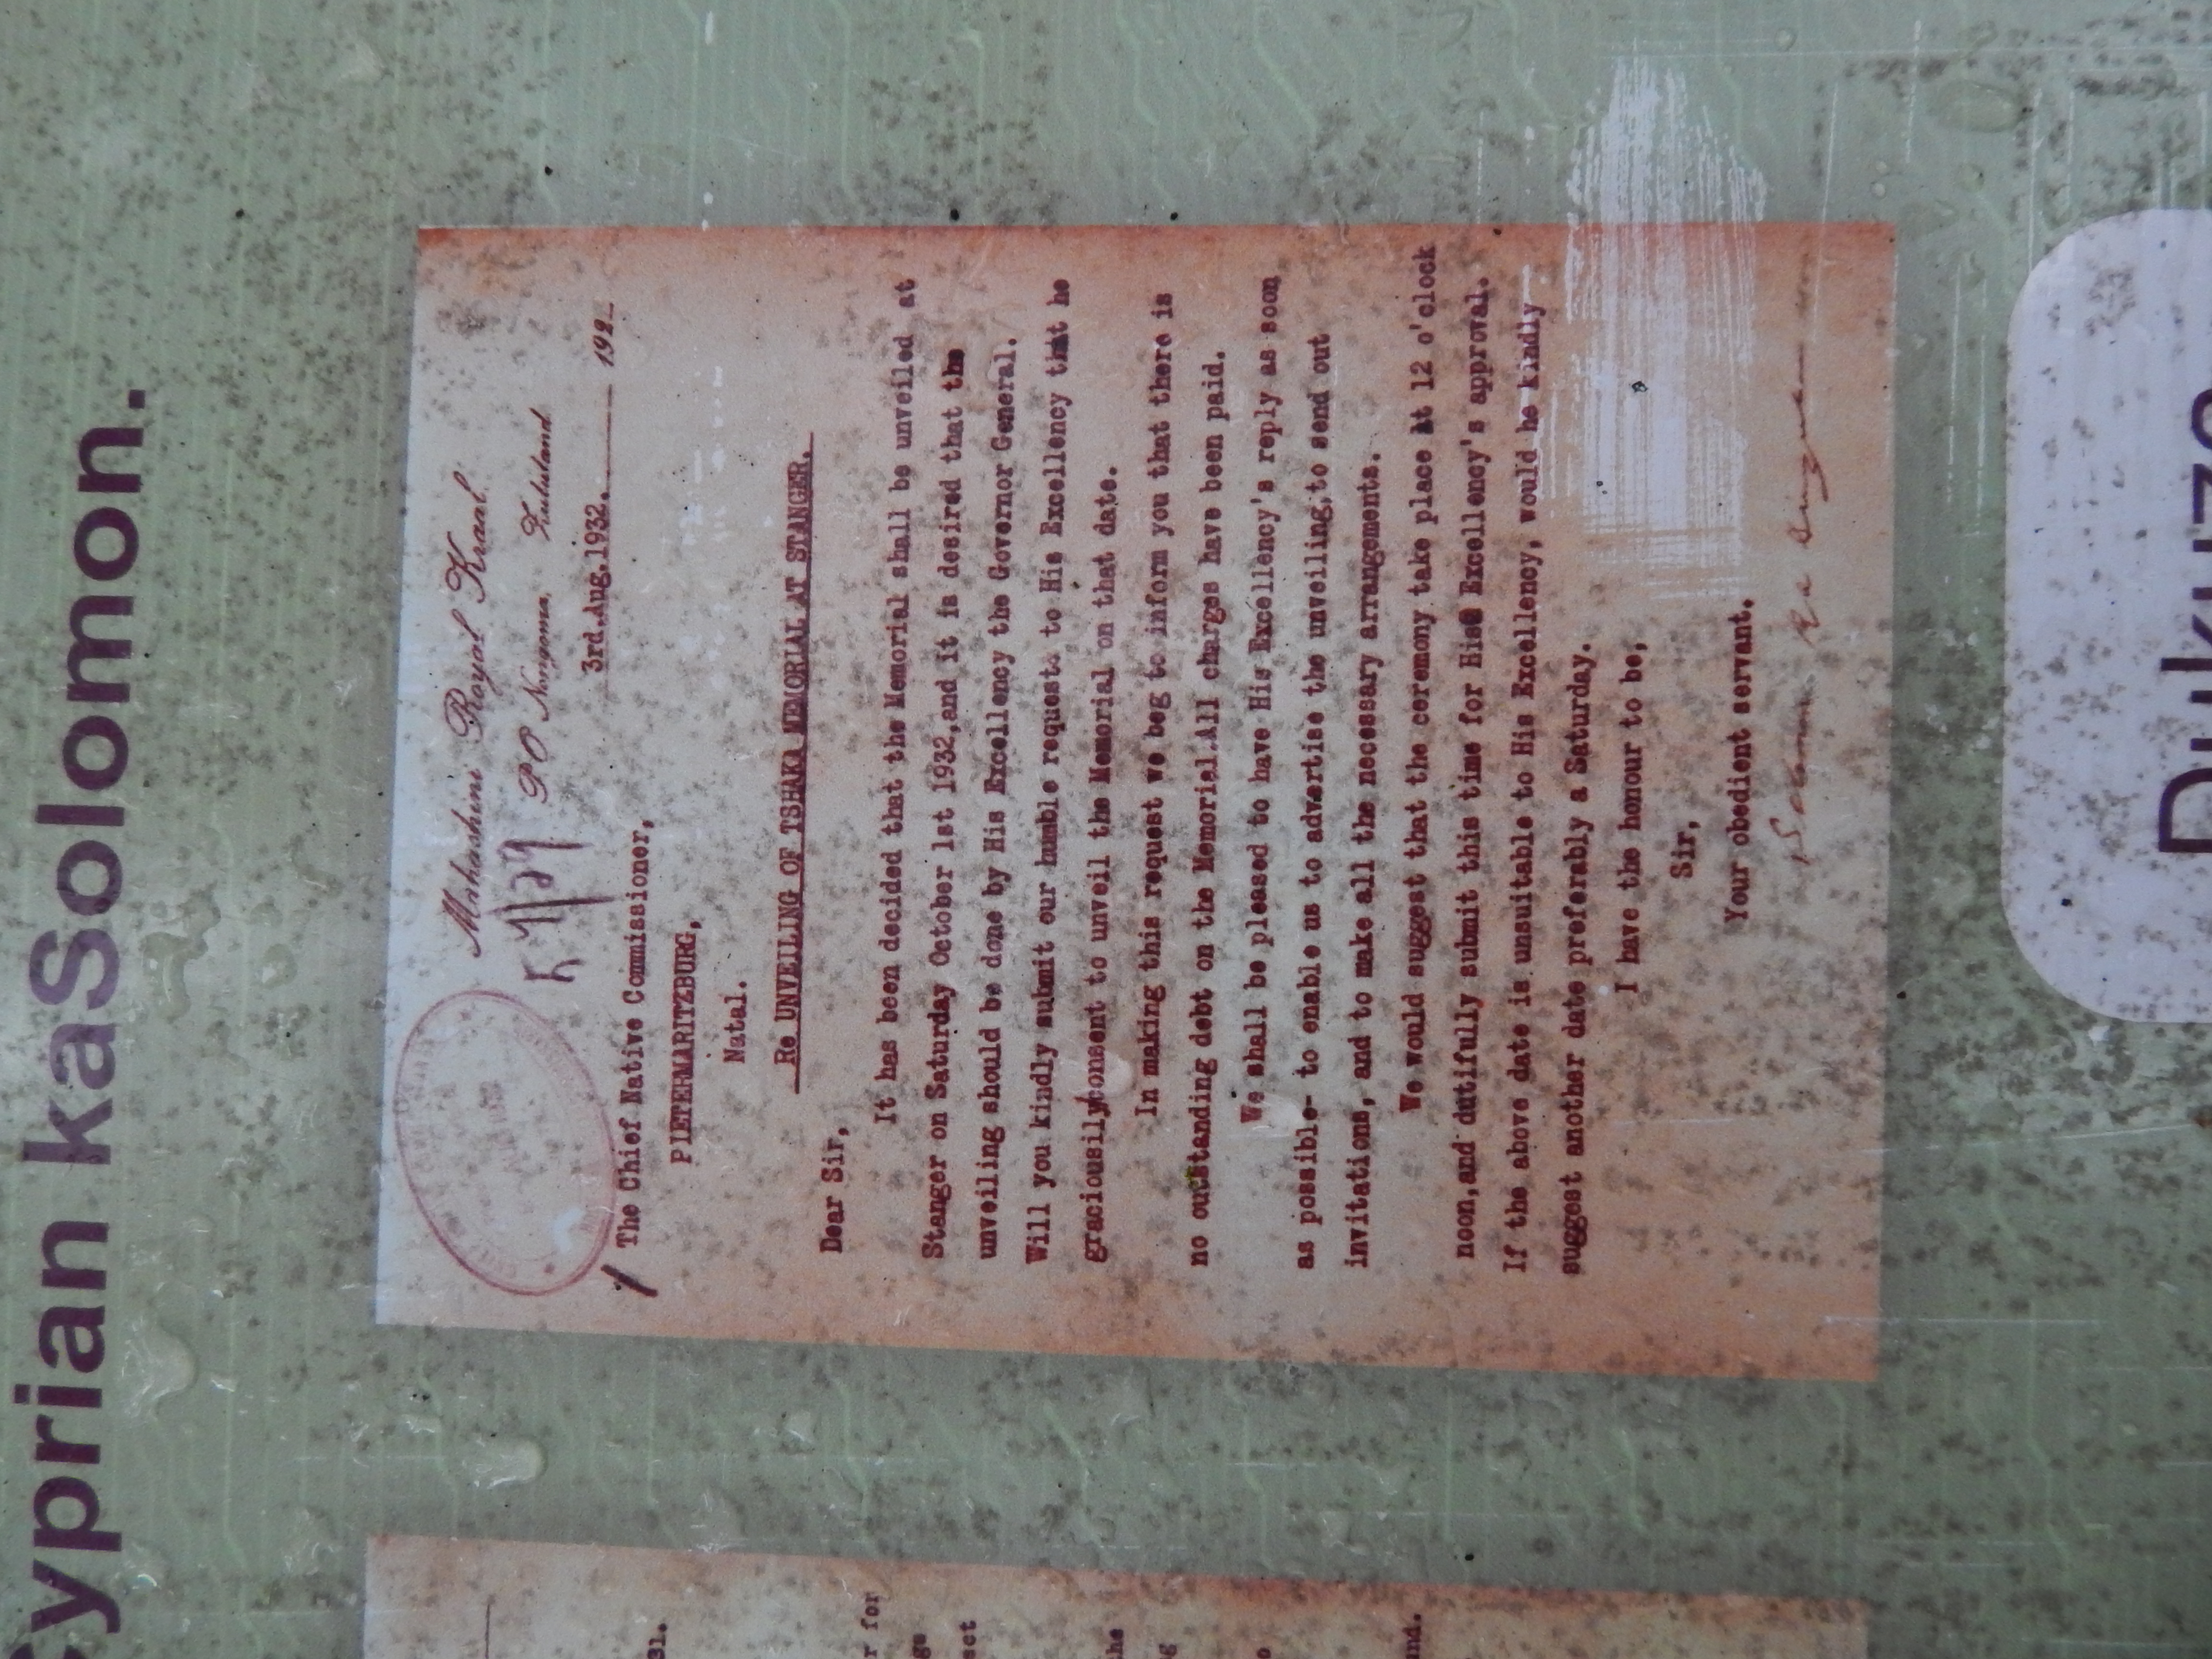 yprian kaSolomon.
Mahashini Royal Kraal
P O Nongoma, Zululand
3rd.Aug.1932. 192
The Chief Native Commissioner,
PIETERMARITZBURG,
Natal.
Re UNVEILING OF TSHAKA MEMORIAL AT STANGER.
Dear Sir,
It has been decided that the Memorial shall be unveiled at
Stanger on Saturday October 1st 1932,and it is desired that the
unveiling should be done by His Excellency the Governor General.
Will you kindly submit our humble requests to His Excellency that he
graciously consent to unveil the Memorial on that date.
In making this request we beg to inform you that there is
no outstanding debt on the Memorial.All charges have been paid.
We shall be pleased to have His Excellency's reply as soon
as possible- to enable us to advertise the unveiling,to send out
invitations, and to make all the necessary arrangements.
We would suggest that the ceremony take place at 12 o'clock
noon,and dutifully submit this time for His Excellency's approval.
If the above date is unsuitable to His Excellency, would he kindly
suggest another date preferably a Saturday.
I have the honour to be,
Sir,
Your obedient servant.
Solomon ka Dinuzulu
31.
r for
ge
ect
the
g
o
and.
Dukuza